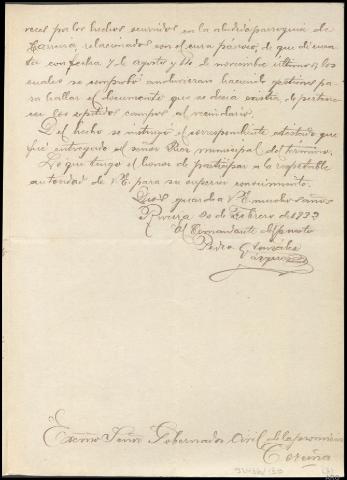 reces por los hechos ocurridos en la aludida parroquia de
Carreira, relacionados con el cura párroco, de que di cuen-
ta con fecha 7 de agosto y 14 de noviembre últimos, los
cuales se comprobó anduvieran haciendo gestiones pa-
ra hallar el documento que se decía existía, de pertene-
cer los repetidos campos al vecindario.
Del hecho se instruyó el correspondiente atestado que
fué entregado al señor Juez municipal del término.
Lo que tengo el honor de participar a la respetable
autoridad de V.E. para su superior conocimiento.
Dios guarde a V.E. muchos años
Riveira 20 de Febrero de 1933
El Comandante del puesto
Pedro González
Vázquez
Excmo Señor Gobernador Civil de la provincia
Coruña